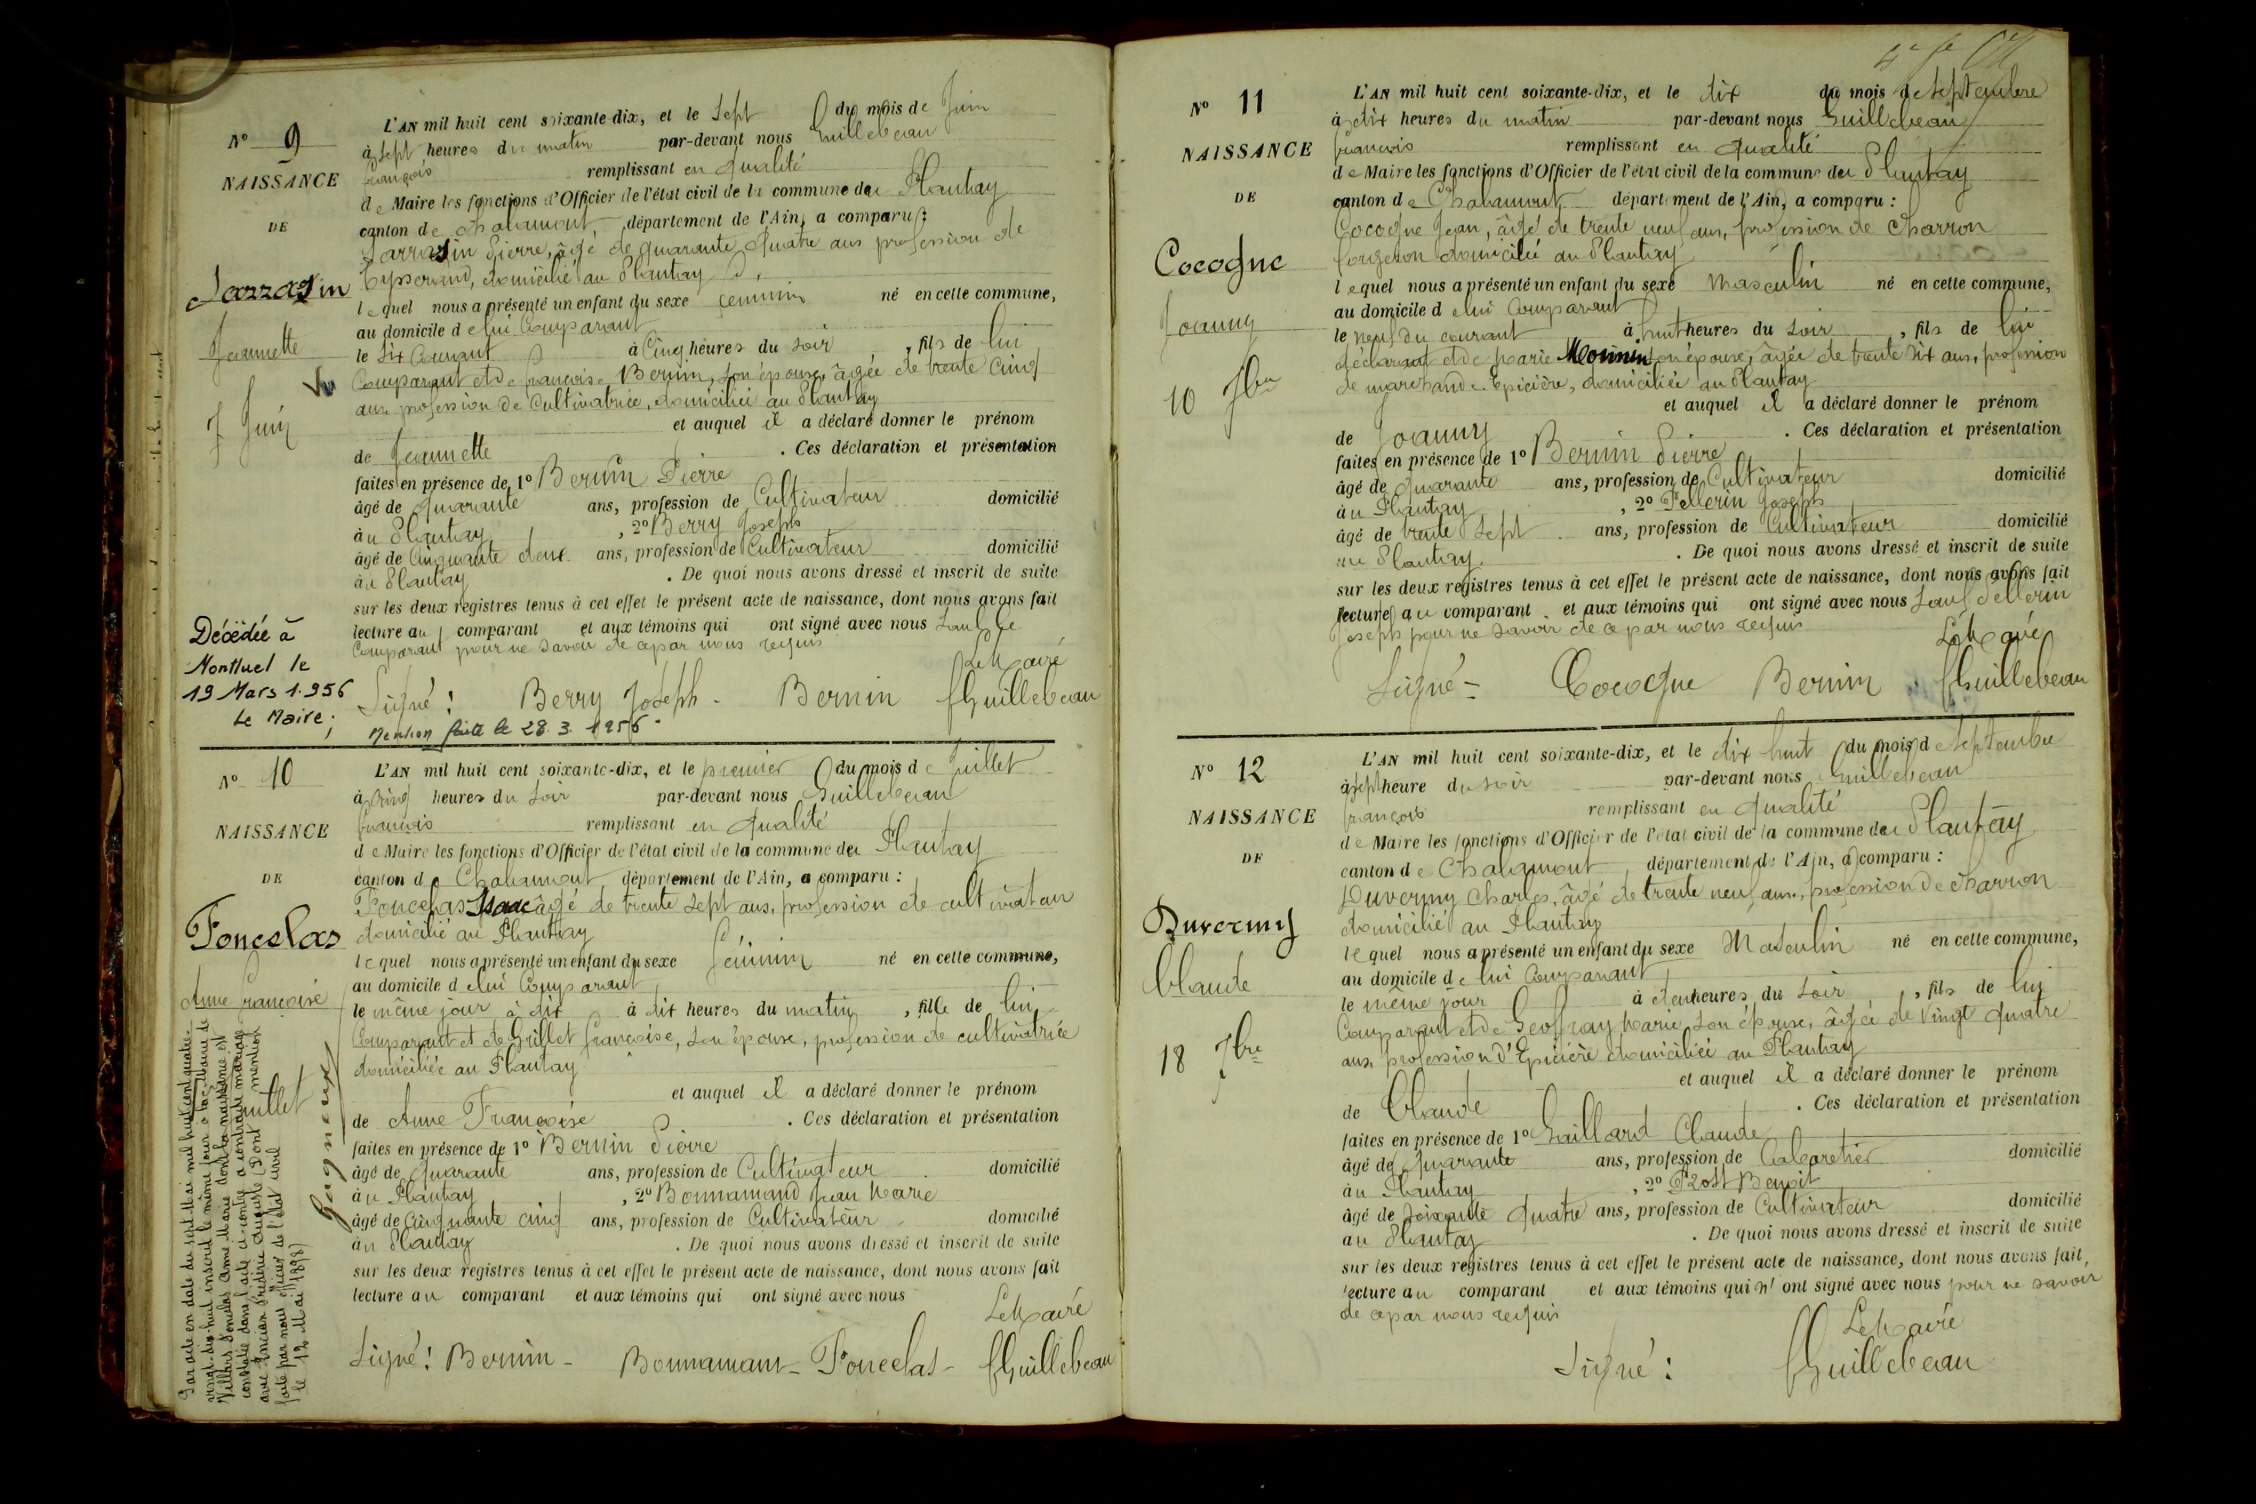 N° 9
NAISSANCE
DE
Sarrasin
Jeannette
7 Juin
Décédée à
Montluel le
19 Mars 1.956
Le Maire,
L'AN mil huit cent soixante-dix, et le sept du mois de Juin
à sept heures du matin par-devant nous Guillebeau
françois remplissant en qualité
de Maire les fonctions d'Officier de l'état civil de la commune du Plantay
canton de Chalamont, département de l'Ain, a comparu :
Sarrasin Pierre, âgé de quarante quatre ans profession de
Tysserand, domicilié au Plantay
lequel nous a présenté un enfant du sexe féminin né en cette commune,
au domicile de lui Comparant
le six Courant à Cinq heures du soir, fils de lui
Comparant et de françoise Bernin, son épouse, âgée de trente cinq
ans profession de Cultivatrice, domiciliée au Plantay
et auquel il a déclaré donner le prénom
de Jeannette. Ces déclaration et présentation
faites en présence de 1° Bernin Pierre
âgé de quarante ans, profession de Cultivateur domicilié
au Plantay, 2° Berry Joseph
âgé de Cinquante deux ans, profession de Cultivateur domicilié
au Plantay. De quoi nous avons dressé et inscrit de suite
sur les deux registres tenus à cet effet le présent acte de naissance, dont nous avons fait
lecture au comparant et aux témoins qui ont signé avec nous sauf le
Comparant pour ne savoir de ce par nous requis
Le Maire
Signé : Berry Joseph - Bernin fGuillebeau
Mention faite le 28.3.1956.
N° 10
NAISSANCE
DE
Poncelas
Anne françoise
Juillet
Par acte en date du sept Mai mil huit cent quatre-
vingt-dix-huit inscrit le même jour à la Mairie de
Villars Poncelas Anne Marie dont la naissance est
constatée dans l'acte ci-contre a contracté mariage
avec Ancian Frédéric Auguste (Dont mention
faite par nous officier de l'état civil
le 12 Mai 1898)
Gagneux
L'AN mil huit cent soixante-dix, et le premier du mois de Juillet
à cinq heures du soir par-devant nous Guillebeau
françois remplissant en qualité
de Maire les fonctions d'Officier de l'état civil de la commune du Plantay
canton de Chalamont département de l'Ain, a comparu :
Poncelas Isaac âgé de trente sept ans, profession de cultivateur
domicilié au Plantay
lequel nous a présenté un enfant du sexe féminin né en cette commune,
au domicile de lui Comparant
le même jour à dix à dix heures du matin, fille de lui
Comparant et de Grillet françoise, son épouse, profession de cultivatrice
domiciliée au Plantay
et auquel il a déclaré donner le prénom
de Anne Françoise. Ces déclaration et présentation
faites en présence de 1° Bernin Pierre
âgé de quarante ans, profession de Cultivateur domicilié
au Plantay, 2° Bonnamand Jean Marie
âgé de cinquante cinq ans, profession de Cultivateur domicilié
au Plantay. De quoi nous avons dressé et inscrit de suite
sur les deux registres tenus à cet effet le présent acte de naissance, dont nous avons fait
lecture au comparant et aux témoins qui ont signé avec nous
Le Maire
Signé : Bernin - Bonnamant - Poncelas - fGuillebeau
N° 11
NAISSANCE
DE
Cocogne
Joanny
10 7bre
L'AN mil huit cent soixante-dix, et le dix du mois de septembre
à dix heures du matin par-devant nous Guillebeau
francois remplissant en qualité
de Maire les fonctions d'Officier de l'état civil de la commune du Plantay
canton de Chalamont département de l'Ain, a comparu :
Cocogne Jean, âgé de trente neuf ans, profession de Charron
forgeron domicilié au Plantay
lequel nous a présenté un enfant du sexe Masculin né en cette commune,
au domicile de lui Comparant
le neuf du courant à huit heures du soir, fils de lui
déclarant et de Marie Monnin son épouse, âgée de trente six ans, profession
de marchande Epicière, domiciliée au Plantay
et auquel il a déclaré donner le prénom
de Joanny. Ces déclaration et présentation
faites en présence de 1° Bernin Pierre
âgé de quarante ans, profession de Cultivateur domicilié
au Plantay, 2° Pellerin Joseph
âgé de trente sept ans, profession de Cultivateur domicilié
au Plantay. De quoi nous avons dressé et inscrit de suite
sur les deux registres tenus à cet effet le présent acte de naissance, dont nous avons fait
lecture au comparant et aux témoins qui ont signé avec nous sauf Pellerin
Joseph pour ne savoir de ce par nous requis
Le Maire
Signé - Cocogne Bernin fGuillebeau
N° 12
NAISSANCE
DE
Duverny
Claude
18 7bre
L'AN mil huit cent soixante-dix, et le dix huit du mois de septembre
à sept heure du soir par-devant nous Guillebeau
françois remplissant en qualité
de Maire les fonctions d'Officier de l'état civil de la commune du Plantay
canton de Chalamont département de l'Ain, a comparu :
Duverny Charles, âgé de trente neuf ans, profession de charron
domicilié au Plantay
lequel nous a présenté un enfant du sexe Masculin né en cette commune,
au domicile de lui Comparant
le même jour à deux heures du soir, fils de lui
Comparant et de Geoffray Marie, son épouse, âgée de vingt quatre
ans, profession d'Epicière domiciliée au Plantay
et auquel il a déclaré donner le prénom
de Claude. Ces déclaration et présentation
faites en présence de 1° Gaillard Claude
âgé de quarante ans, profession de Cabaretier domicilié
au Plantay, 2° Prost Benoit
âgé de soixante quatre ans, profession de Cultivateur domicilié
au Plantay. De quoi nous avons dressé et inscrit de suite
sur les deux registres tenus à cet effet le présent acte de naissance, dont nous avons fait
lecture au comparant et aux témoins qui n'ont signé avec nous pour ne savoir
de ce par nous requis
Le Maire
Signé : fGuillebeau